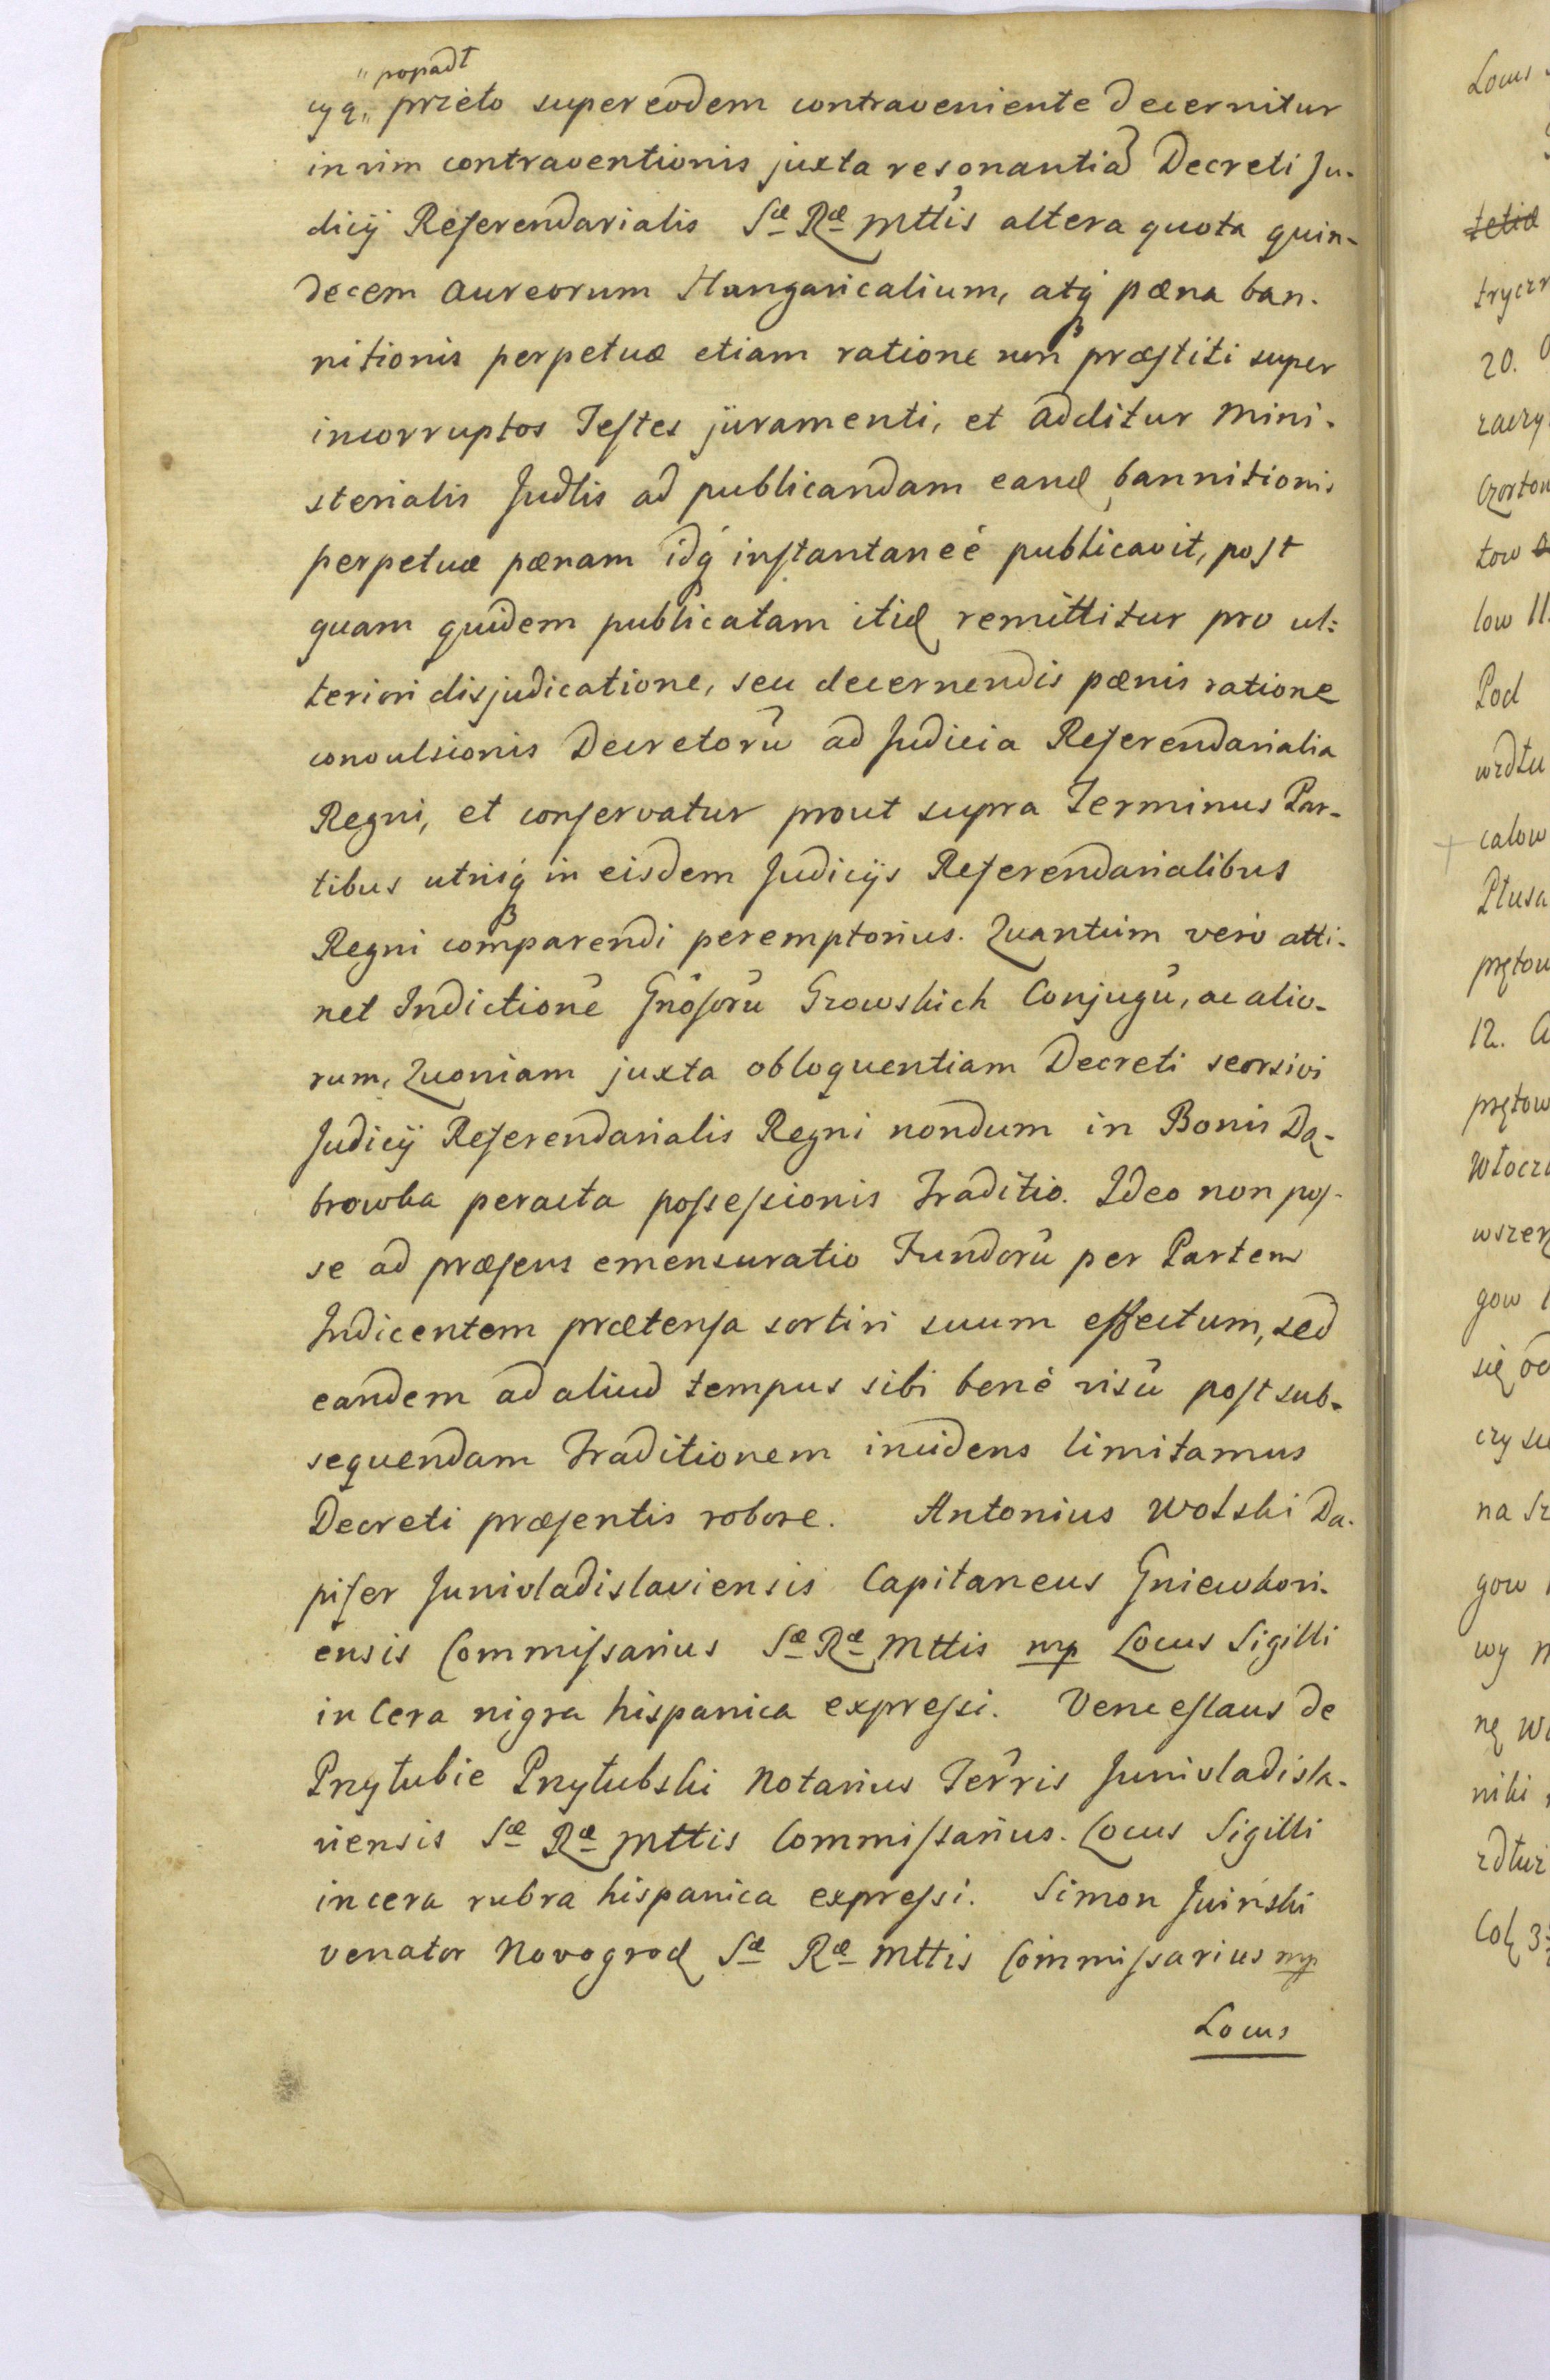 popadł
cyą, przeto super eodem contraveniente decernitur
in vim contraventionis juxta resonantiã Decreti Ju-
dicij Referendarialis Sæ Ræ Mttis altera quota quin-
decem Aureorum Hungaricalium, atq́ pæna ban-
nitionis perpetuæ etiam ratione non præstiti super
incorruptos Testes juramenti, et additur Mini-
sterialis Judlis ad publicandam eand bannitionis
perpetuæ pænam idq́ instantaneè publicavit, post
quam quidem publicatam itid remittitur pro ul:
teriori disjudicatione, seu decernendis pænis ratione
convulsionis Decretorũ ad Judicia Referendarialia
Regni, et conservatur prout supra Terminus Par-
tibus utrisq́ in eisdem Judicijs Referendarialibus
Regni comparendi peremptorius. Quantum verò atti-
net Indictionẽ Gnosorũ Growskich Conjugũ, ac alio-
rum, Quoniam juxta obloquentiam Decreti seorsivi
Judicij Referendarialis Regni nondum in Bonis Dą-
browka peracta possessionis Traditio. Ideo non pos-
se ad præsens emensuratio Fundorũ per Partem
Indicentem prætensa sortiri suum effectum, sed
eandem ad aliud tempus sibi benè visũ post sub-
sequendam Traditionem incidens limitamus
Decreti præsentis robore. Antonius Wolski Da-
pifer Junivladislaviensis Capitaneus Gniewkovi-
ensis Commissarius Sæ Ræ Mttis mp Locus Sigilli
in Cera nigra hispanica expressi. Venceslaus de
Przyłubie Przyłubski Notarius Terris Junivladisla-
viensis Sæ Ræ Mttis Commissarius. Locus Sigilli
in cera rubra hispanica expressi. Simon Jwiński
venator Novogrod Sæ Ræ Mttis Commissarius mp
Locus
Locus
20.
low
Pod
12.
gow
się
na
gow
wy